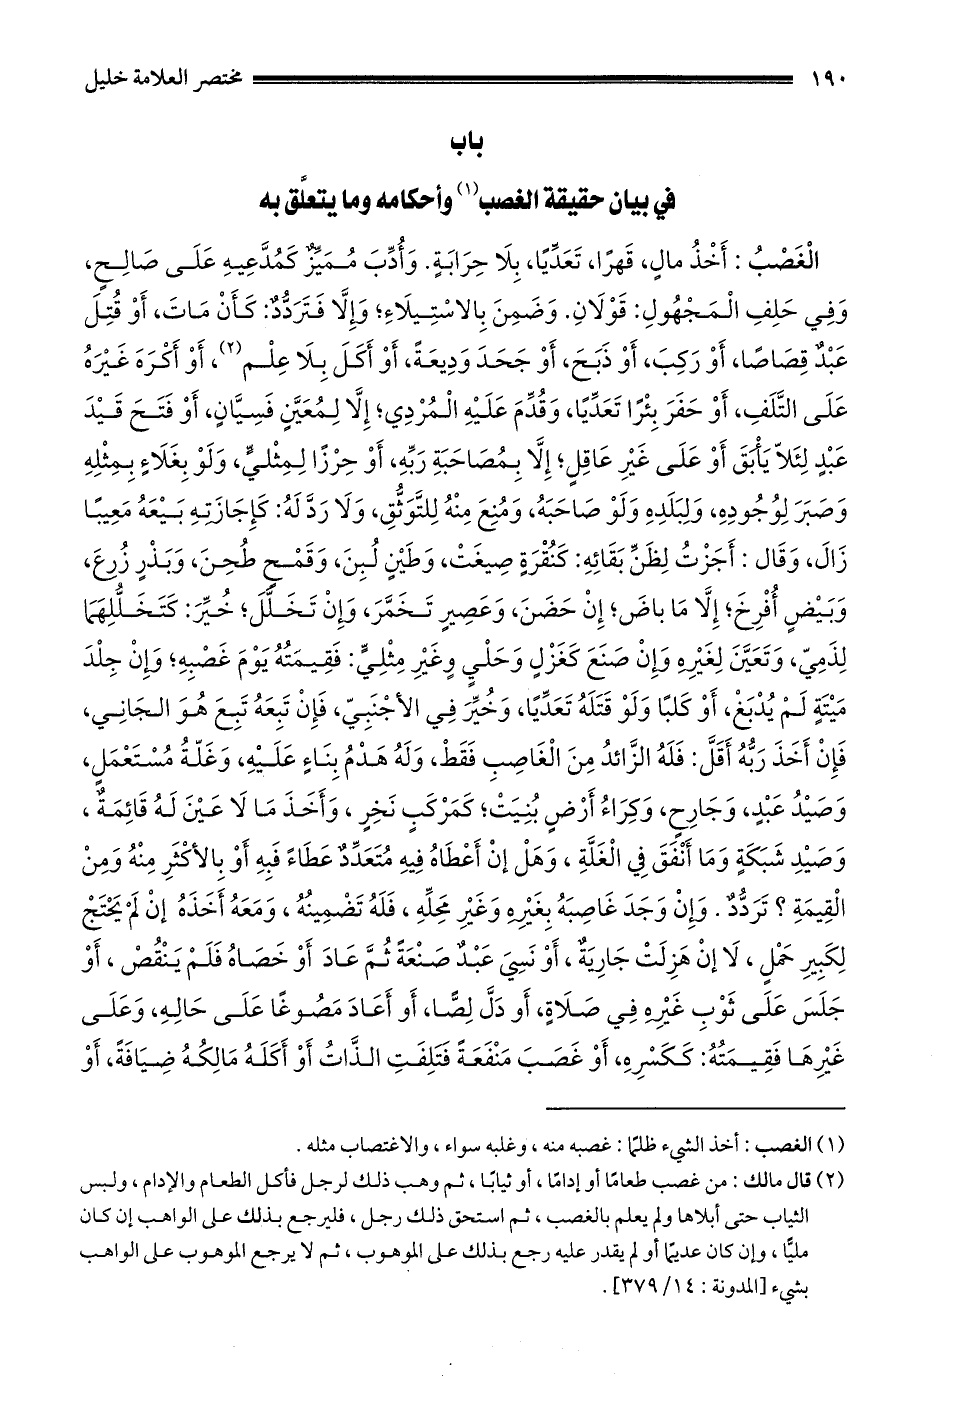 ١٩٠ مختصر العلامة خليل
باب
في بيان حقيقة الغصب(١) وأحكامه وما يتعلَّق به
الْغَصْبُ : أَخْذُ مالٍ، قَهرًا، تَعَدِّيًا، بِلَا حِرَابَةٍ. وَأُدِّبَ مُمَيِّزٌ كَمُدَّعِيهِ عَلَى صَالِحٍ،
وَفِي حَلِفِ الْمَجْهُولِ: قَوْلَانِ. وَضَمِنَ بِالاسْتِيلَاءِ؛ وَإِلَّا فَتَرَدُّدٌ: كَأَنْ مَاتَ، أَوْ قُتِلَ
عَبْدٌ قِصَاصًا، أَوْ رَكِبَ، أَوْ ذَبَحَ، أَوْ جَحَدَ وَدِيعَةً، أَوْ أَكَلَ بِلَا عِلْمٍ(٢)، أَوْ أَكْرَهَ غَيْرَهُ
عَلَى التَّلَفِ، أَوْ حَفَرَ بِئْرًا تَعَدِّيًا، وَقُدِّمَ عَلَيْهِ الْمُرْدِي؛ إِلَّا لِمُعَيَّنٍ فَسِيَّانِ، أَوْ فَتَحَ قَيْدَ
عَبْدٍ لِئَلاَّ يَأْبَقَ أَوْ عَلَى غَيْرِ عَاقِلٍ؛ إِلَّا بِمُصَاحَبَةِ رَبِّهِ، أَوْ حِرْزًا لِمِثْلِيٍّ، وَلَوْ بِغَلَاءٍ بِمِثْلِهِ
وَصَبَرَ لِوُجُودِهِ، وَلِبَلَدِهِ وَلَوْ صَاحَبَهُ، وَمُنِعَ مِنْهُ لِلتَّوَثُّقِ، وَلَا رَدَّ لَهُ: كَإِجَازَتِهِ بَيْعَهُ مَعِيبًا
زَالَ، وَقَال : أَجَزْتُ لِظَنِّ بَقَائِهِ: كَنُقْرَةٍ صِيغَتْ، وَطَيْنٍ لُبِنَ، وَقَمْحٍ طُحِنَ، وَبَذْرٍ زُرِعَ،
وَبَيْضٍ أُفْرِخَ؛ إِلَّا مَا باضَ؛ إِنْ حَضَنَ، وَعَصِيرٍ تَخَمَّرَ، وَإِنْ تَخَلَّلَ؛ خُيِّرَ: كَتَخَلُّلِهَا
لِذمِيّ، وَتَعَيَّنَ لِغَيْرِهِ وَإِنْ صَنَعَ كَغَزْلٍ وَحَلْيٍ وغَيْرِ مِثْلِيٍّ: فَقِيمَتُهُ يَوْمَ غَصْبِهِ؛ وَإِنْ جِلْدَ
مَيْتَةٍ لَمْ يُدْبَغْ، أَوْ كَلبًا وَلَوْ قَتَلَهُ تَعَدِّيًا، وَخُيِّرَ فِي الأَجْنَبِيّ، فَإِنْ تَبِعَهُ تَبِعَ هُوَ الجَانِي،
فَإِنْ أَخَذَ رَبُّهُ أَقَلَّ: فَلَهُ الزَّائدُ مِنَ الْغَاصِبِ فَقَطْ، وَلَهُ هَدْمُ بِنَاءٍ عَلَيْهِ، وَغَلَّةُ مُسْتَعْمَلٍ،
وَصَيْدُ عَبْدٍ، وَجَارِحٍ، وَكِرَاءُ أَرْضٍ بُنِيَتْ؛ كَمَرْكَبٍ نَخِرٍ ، وَأَخَذَ مَا لَا عَيْنَ لَهُ قَائِمَةٌ ،
وَصَيْدِ شَبَكَةٍ وَمَا أَنْفَقَ فِي الْغَلَّةِ ، وَهَلْ إِنْ أَعْطَاهُ فِيهِ مُتَعَدِّدٌ عَطَاءً فَبِهِ أَوْ بِالأَكْثَرِ مِنْهُ وَمِنْ
الْقِيمَةِ ؟ تَرَدُّدٌ . وَإِنْ وَجَدَ غَاصِبَهُ بِغَيْرِهِ وَغَيْرِ مَحِلِّهِ ، فَلَهُ تَضْمِينُهُ ، وَمَعَهُ أَخَذَهُ إِنْ لَمْ يَحْتَجْ
لِكَبِيرِ حَمْلٍ ، لَا إِنْ هَزِلَتْ جَارِيَةٌ ، أَوْ نَسِيَ عَبْدٌ صَنْعَةً ثُمَّ عَادَ أَوْ خَصَاهُ فَلَمْ يَنْقُصْ ، أَوْ
جَلَسَ عَلَى ثَوْبِ غَيْرِهِ فِي صَلَاةٍ، أَو دَلَّ لِصًّا، أَو أَعَادَ مَصُوغًا عَلَى حَالِهِ، وَعَلَى
غَيْرِهَا فَقِيمَتُهُ: كَكَسْرِهِ، أَوْ غَصَبَ مَنْفَعَةً فَتَلِفَتِ الذَّاتُ أَوْ أَكَلَهُ مَالِكُهُ ضِيَافَةً، أَوْ
(١) الغصب : أخذ الشيء ظلمًا : غصبه منه ، وغلبه سواء ، والاغتصاب مثله .
(٢) قال مالك : من غصب طعامًا أو إدامًا ، أو ثيابًا ، ثم وهب ذلك لرجل فأكل الطعام والإدام ، ولبس
الثياب حتى أبلاها ولم يعلم بالغصب ، ثم استحق ذلك رجل ، فليرجع بذلك على الواهب إن كان
مليًّا ، وإن كان عديمًا أو لم يقدر عليه رجع بذلك على الموهوب ، ثم لا يرجع الموهوب على الواهب
بشيء [المدونة : ١٤/ ٣٧٩] .